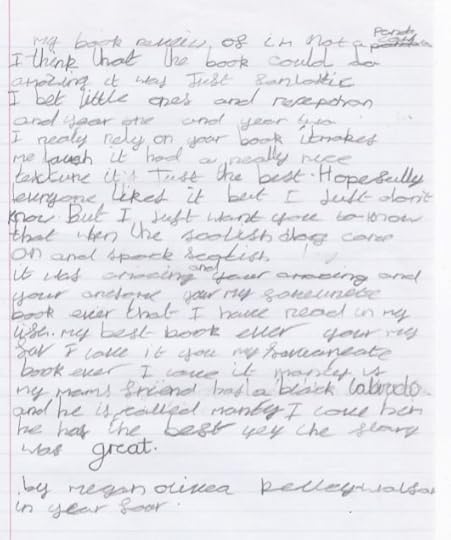 my book review of im not a panda
I think that the book could so
amazing it was Just fantastic
I bet little ones and reception
and year one and year two
I really rely on your book it makes
me laugh it had a really nice
texture it's Just the best. Hopefully
everyone likes it but I Just don't
know. But I Just want you to know
that when the scotish dog came
on and spock scotish
it was amazing and your amazing and
your my
book ever that I have read in my
life. my best book ever your my
I love it you my
book ever I love it is
my mams friend has a black labrado.
and he is called I love
he has the best the story
was great.
by megan olivea kelley
in year foar.